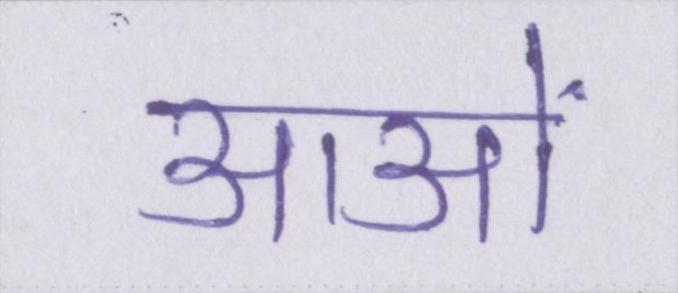 आओं